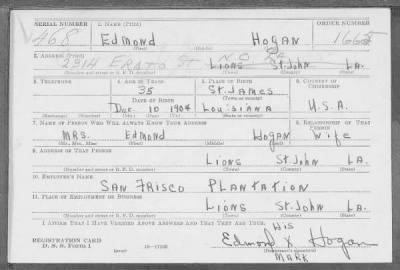 SERIAL NUMBER 1. NAME (Print) ORDER NUMBER
V468 Edmond Hogan 1665
(First) (Middle) (Last)
2. ADDRESS (Print)
2314 ERATO St N.O. La.
Lions St. John LA.
(Number and street or R. F. D. number) (Town) (County) (State)
3. TELEPHONE 4. AGE IN YEARS 5. PLACE OF BIRTH 6. COUNTRY OF CITIZENSHIP
35 St. James
DATE OF BIRTH (Town or county)
Dec. 10 1904 Louisiana U.S.A.
(Exchange) (Number) (Mo.) (Day) (Yr.) (State or country)
7. NAME OF PERSON WHO WILL ALWAYS KNOW YOUR ADDRESS 8. RELATIONSHIP OF THAT PERSON
MRS. Edmond Hogan Wife
(Mr., Mrs., Miss) (First) (Middle) (Last)
9. ADDRESS OF THAT PERSON
Lions St. John LA.
(Number and street or R. F. D. number) (Town) (County) (State)
10. EMPLOYER'S NAME
SAN FRISCO PLANTATION
11. PLACE OF EMPLOYMENT OR BUSINESS
Lions St. John LA.
(Number and street or R. F. D. number) (Town) (County) (State)
I AFFIRM THAT I HAVE VERIFIED ABOVE ANSWERS AND THAT THEY ARE TRUE.
His
REGISTRATION CARD Edmond X Hogan
D. S. S. Form 1 (over) 16—17105 MARK